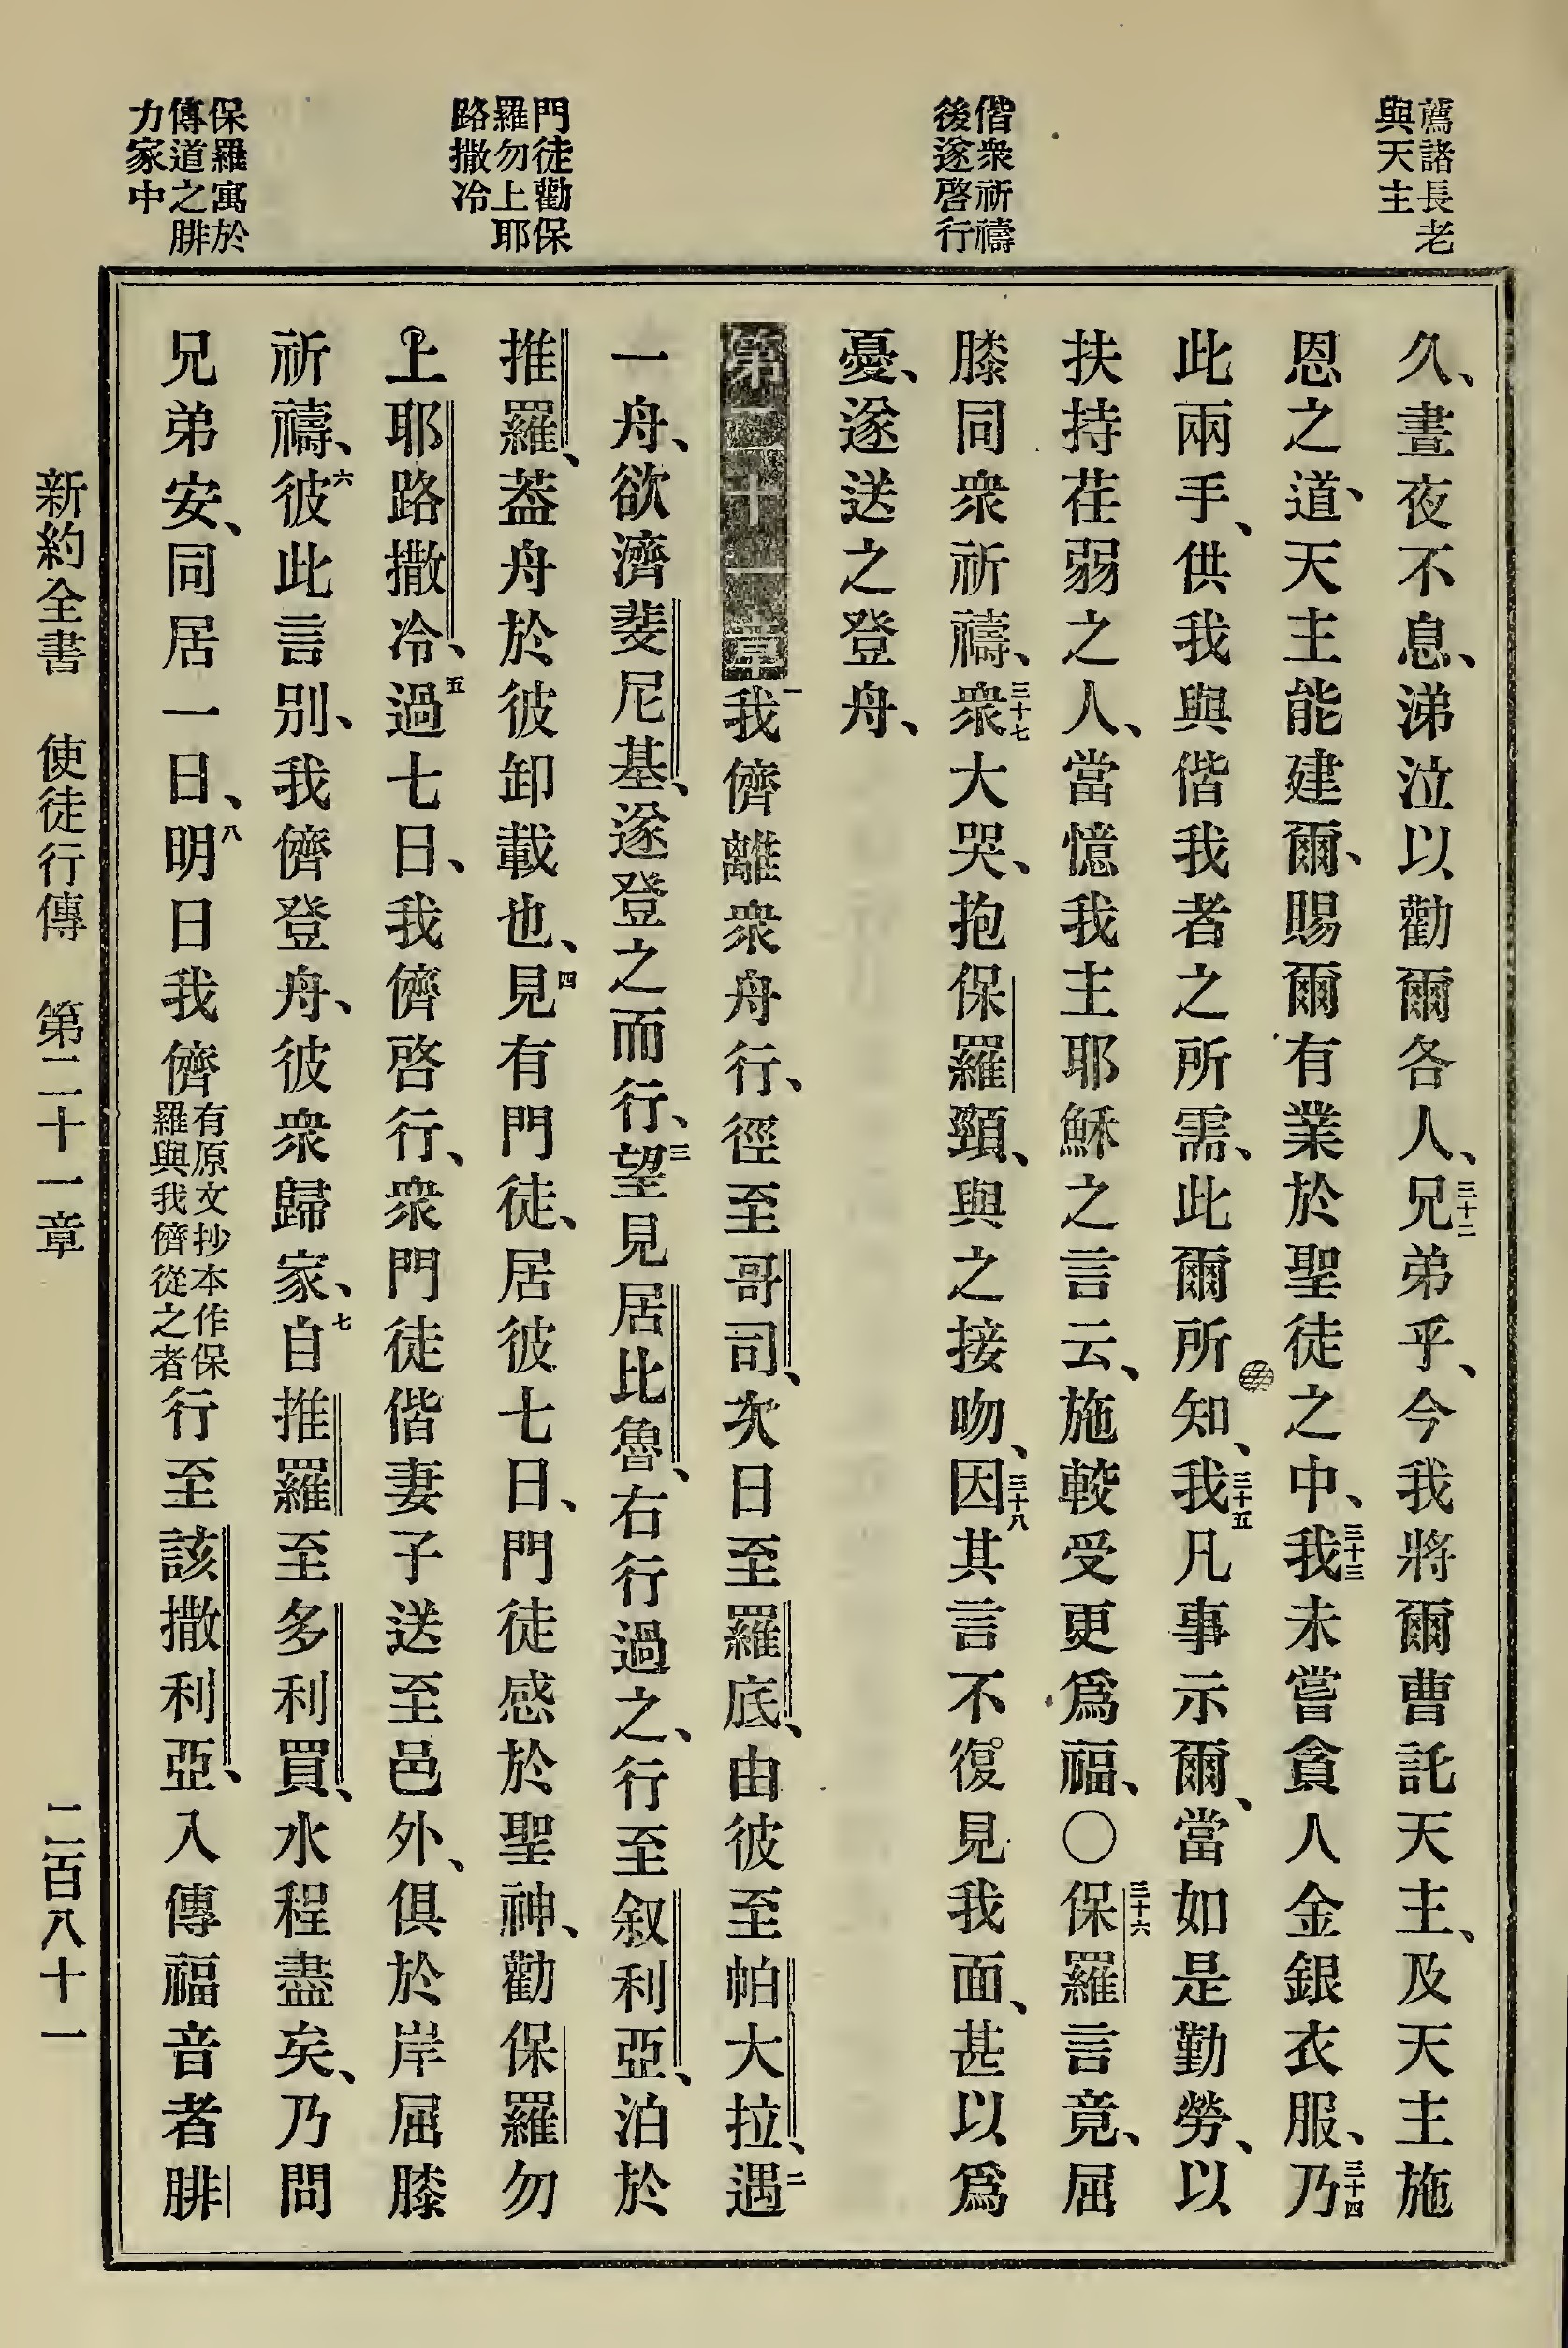 薦諸長老
與天主
偕衆祈禱
後遂啓行
門徒勸保
羅勿上耶
路撒冷
保羅寓於
傳道之腓
力家中
久、晝夜不息、涕泣以勸爾各人、三十二兄弟乎、今我將爾曹託天主、及天主施
恩之道、天主能建爾、賜爾有業於聖徒之中、三十三我未嘗貪人金銀衣服、三十四乃
此兩手、供我與偕我者之所需、此爾所知、三十五我凡事示爾、當如是勤勞、以
扶持荏弱之人、當憶我主耶穌之言云、施較受更爲福、〇三十六保羅言竟、屈
膝同衆祈禱、三十七衆大哭、抱保羅頸、與之接吻、三十八因其言不復見我面、甚以爲
憂、遂送之登舟、
第二十一章一我儕離衆舟行、徑至哥司、次日至羅底、由彼至帕大拉、二遇
一舟、欲濟斐尼基、遂登之而行、三望見居比魯、右行過之、行至叙利亞、泊於
推羅、葢舟於彼卸載也、四見有門徒、居彼七日、門徒感於聖神、勸保羅勿
上耶路撒冷、五過七日、我儕啓行、衆門徒偕妻子送至邑外、俱於岸屈膝
祈禱、六彼此言別、我儕登舟、彼衆歸家、七自推羅至多利買、水程盡矣、乃問
兄弟安、同居一日、八明日我儕有原文抄本作保羅與我儕從之者行至該撒利亞、入傳福音者腓
新約全書 使徒行傳 第二十一章 二百八十一